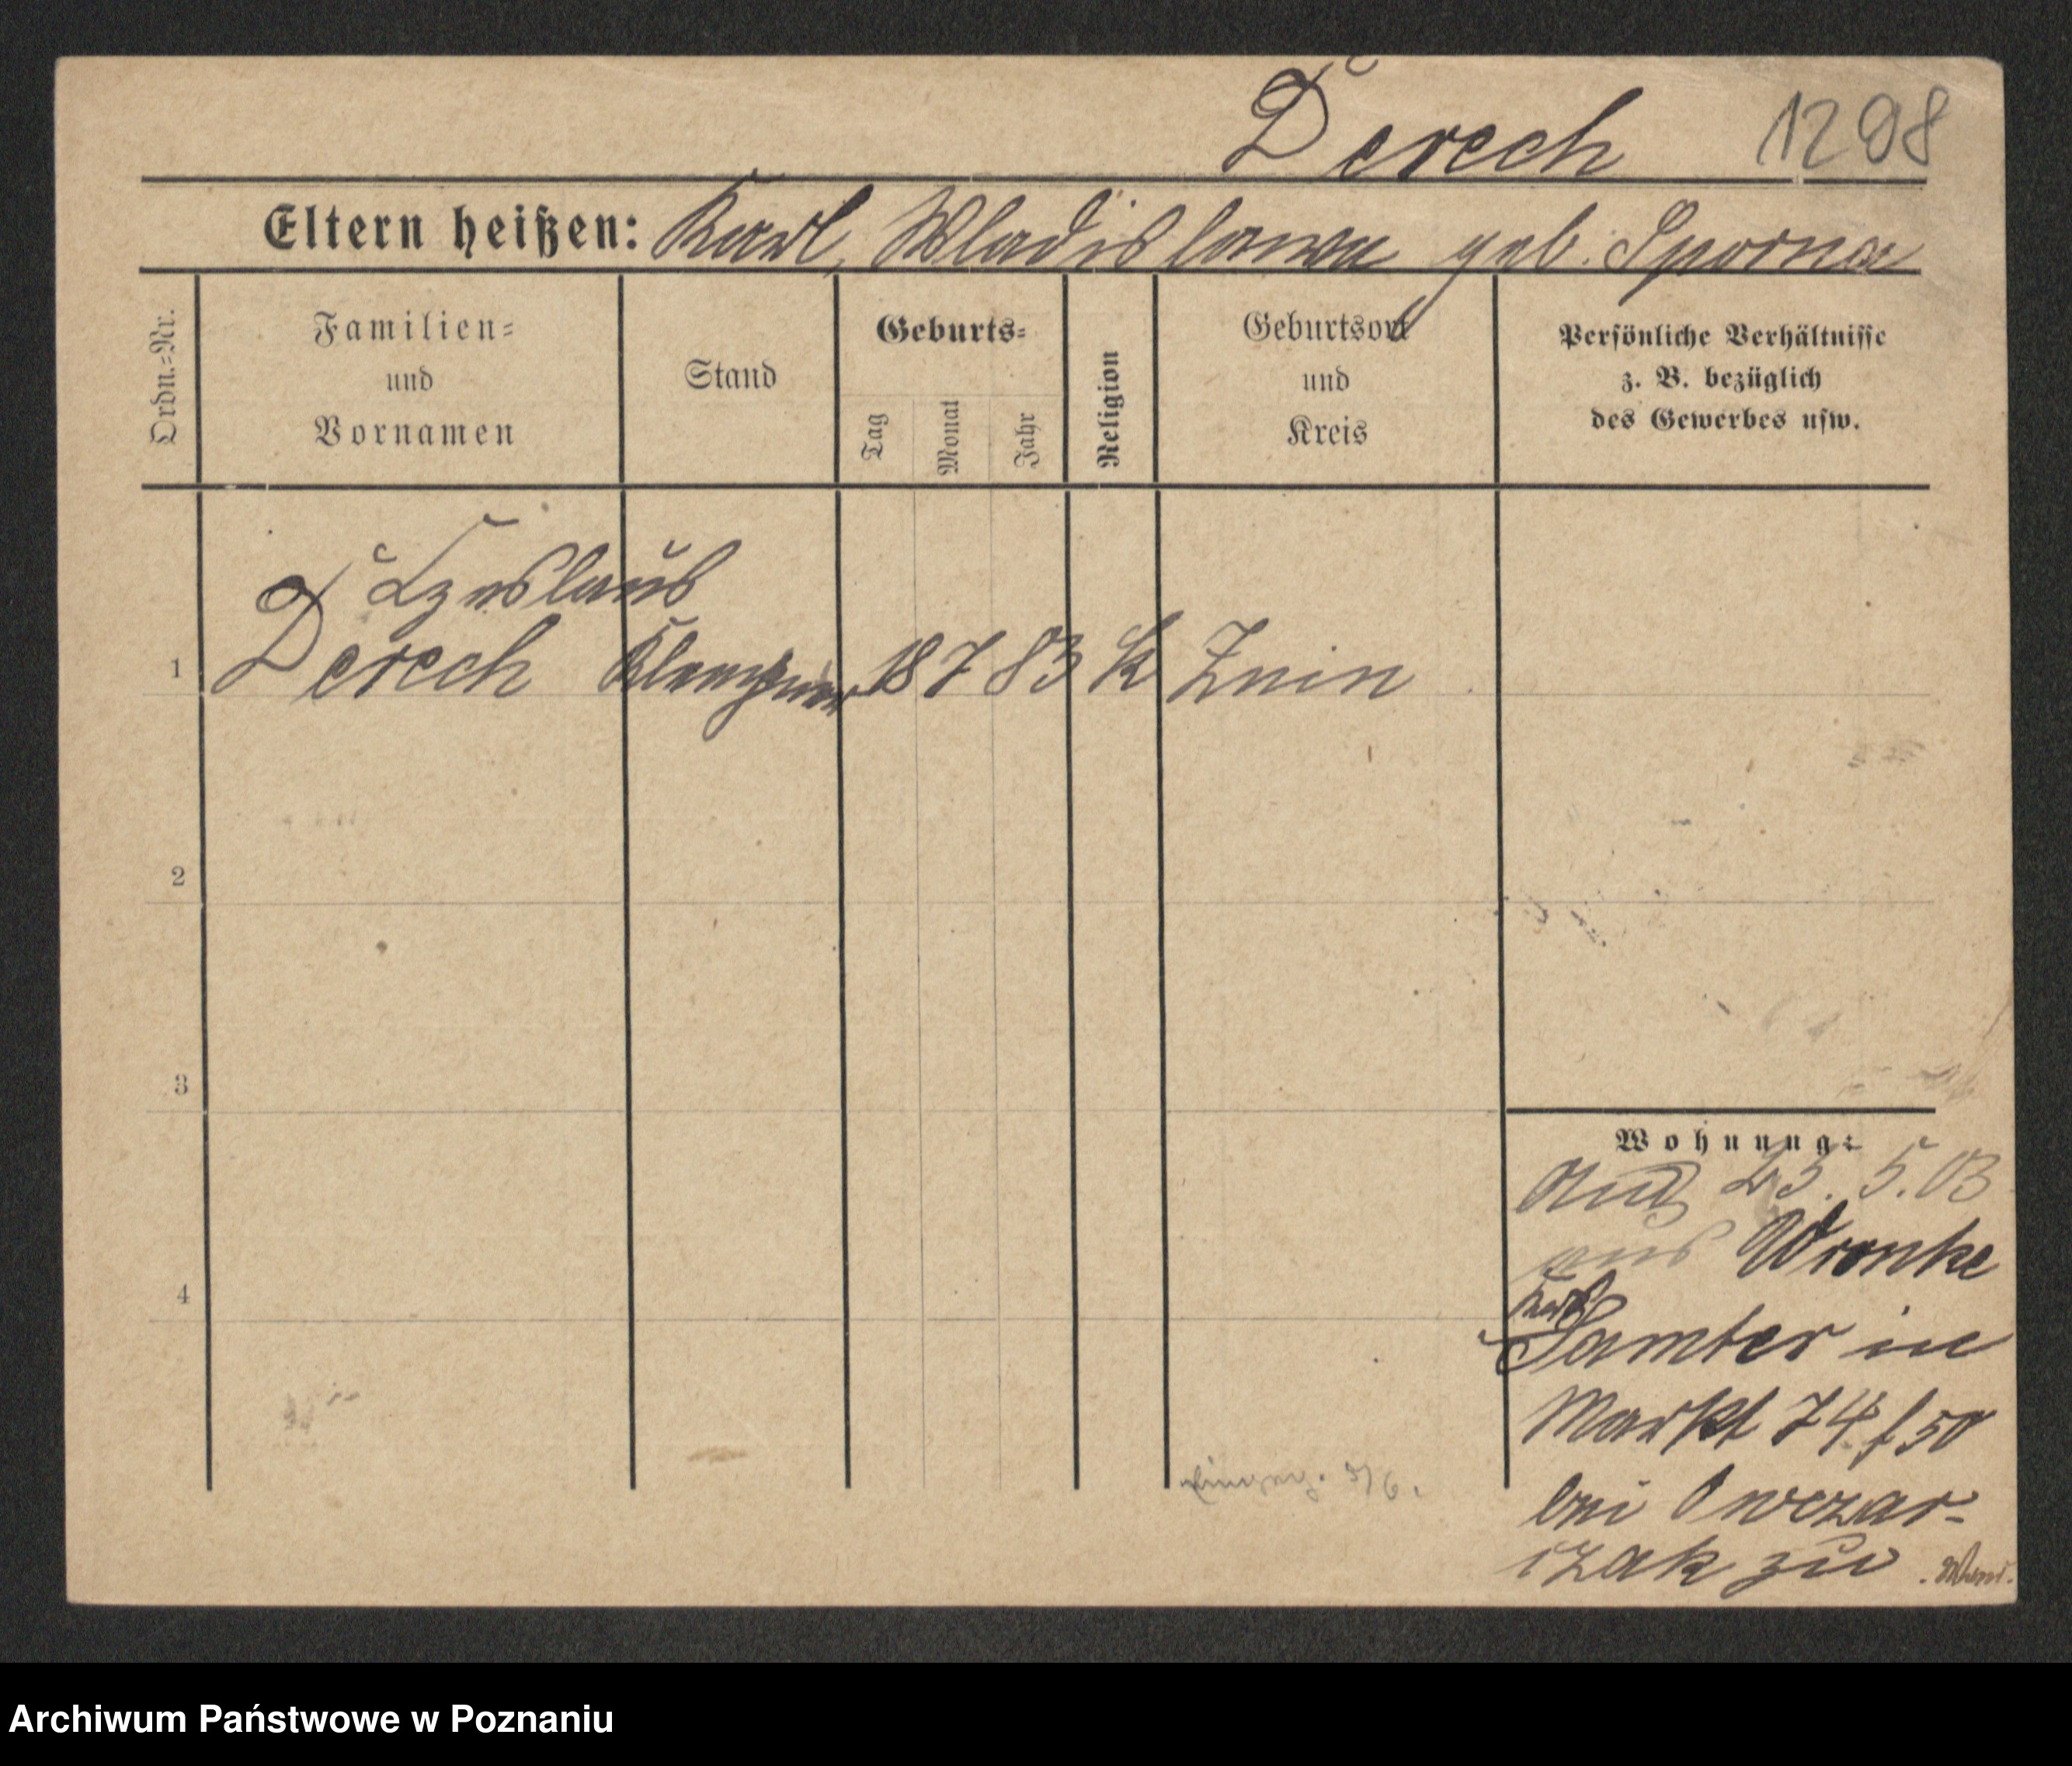 Derech 1298
Eltern heißen: Karl, Wladislawa geb. Sporna
Ordn.-Nr.
Familien-
und
Vornamen
Stand
Geburts-
Tag
Monat
Jahr
Religion
Geburtsort
und
Kreis
Persönliche Verhältnisse
z. B. bezüglich
des Gewerbes usw.
Czeslaus
1 Derech Klempner 18 7 83 K Znin
2
3
4
Wohnung:
23. 5. 03
aus Wronke
nach
Samter in
Markt 74 f 50
bei Owczar-
czak zu
5/6.
Archiwum Państwowe w Poznaniu